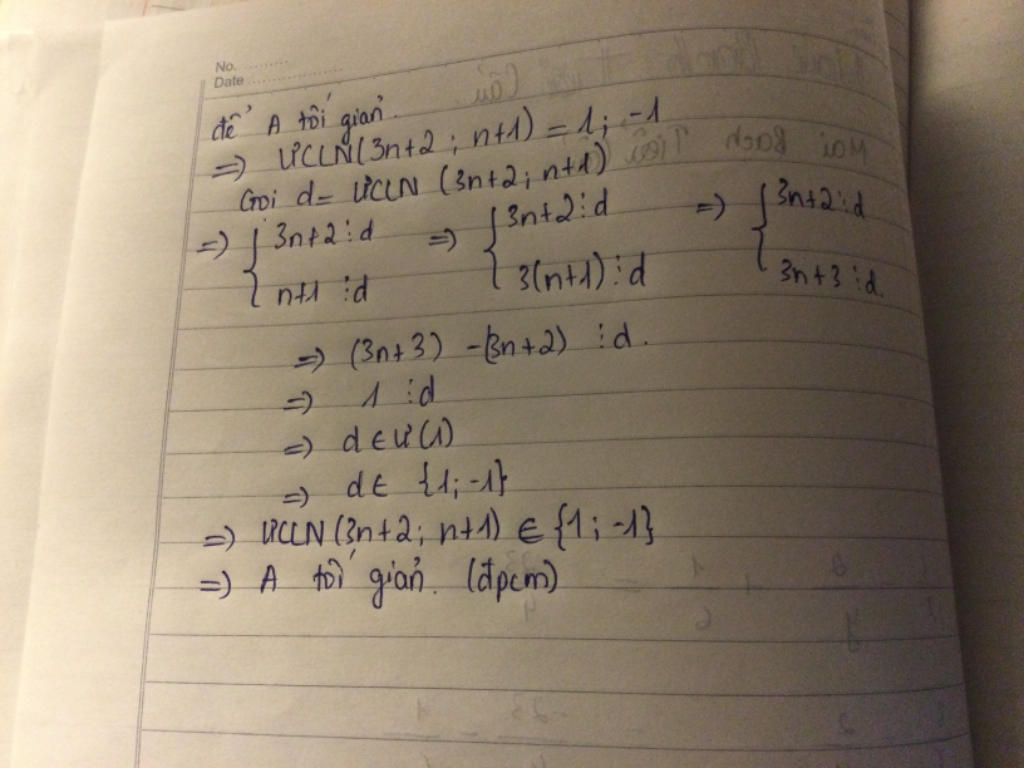 No. ..........
Date .....................
để A tối giản.
=) ƯCLN(3n+2 ; n+1) = 1 ; -1
Gọi d = ƯCLN (3n+2; n+1)
=) { 3n+2 ⋮ d =) { 3n+2 ⋮ d =) { 3n+2 ⋮ d
n+1 ⋮ d 3(n+1) ⋮ d 3n+3 ⋮ d.
=) (3n+3) - (3n+2) ⋮ d.
=) 1 ⋮ d
=) d ∈ Ư(1)
=) d ∈ {1; -1}
=) ƯCLN(3n+2; n+1) ∈ {1; -1}
=) A tối giản. (đpcm)